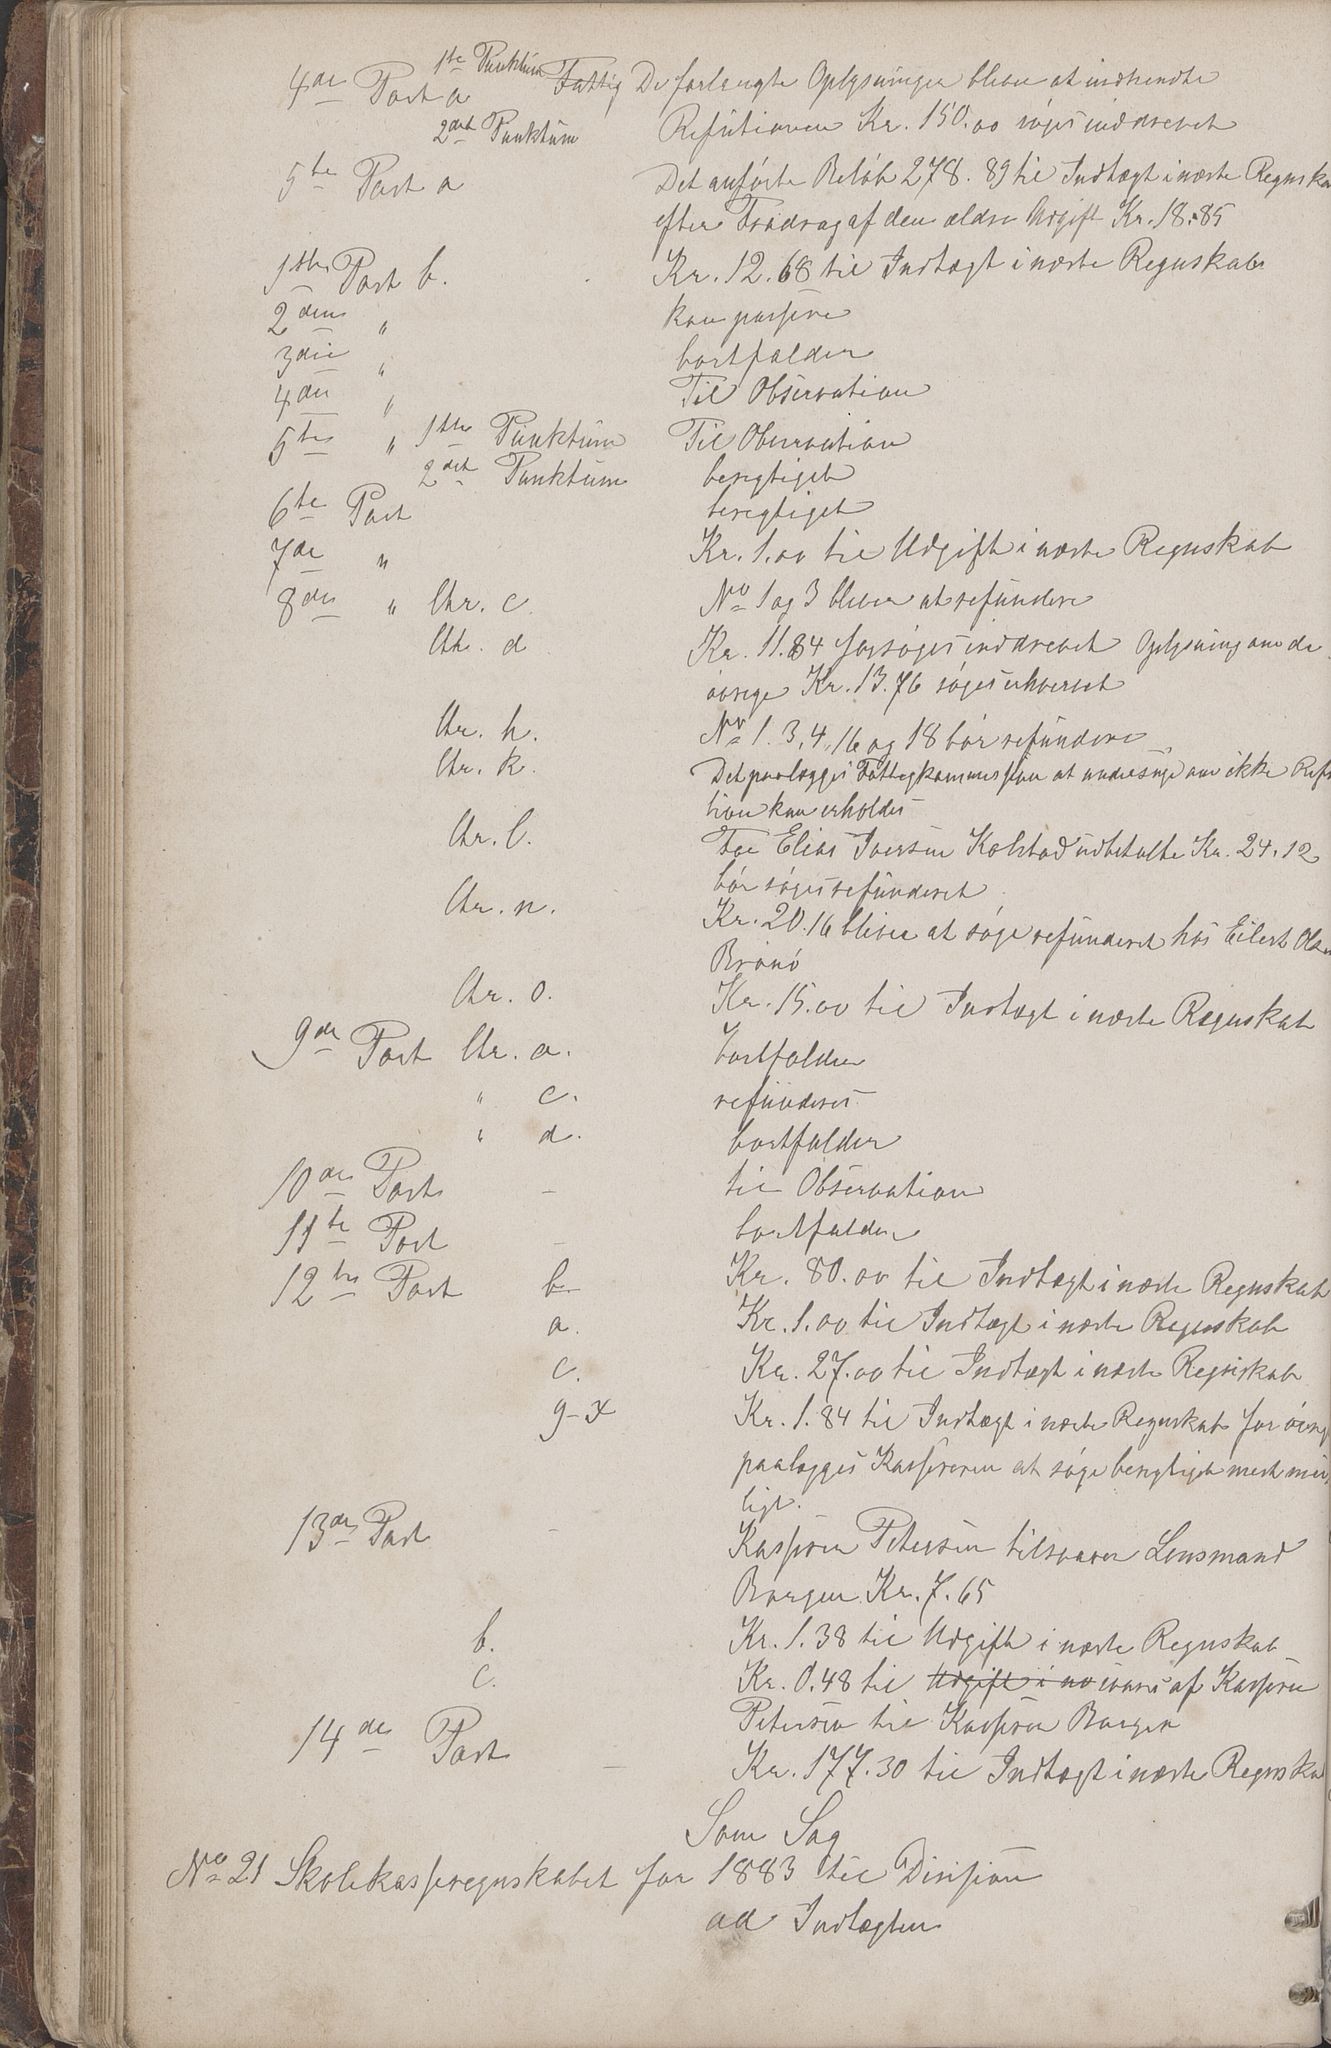 4de Post a 1ste Punktum Fattig De forlangte Oplysninger bliver at indhendte
2det Punktum Refutionen Kr. 150.00 søges inddrevet
5te Post a Det anførte Beløb 278.89 til Indtægt i næste Regnska
efter Fradrag af den ældre Udgift Kr. 18.85
1ste Post b. Kr. 12.68 til Indtægt i næste Regnskab
2den " kan passere
3die " bortfalder
4de " Til Observation
5te " 1ste Punktum Til Observation
2det Punktum berigtiget
6te Post berigtiget
7de " Kr. 1.00 til Udgift i næste Regnskab
8de " Ltr. c No 1 og 3 bliver at refundere
Ltr. d Kr. 11.84 forsøges inddrevet Oplysning om de
øvrige Kr. 13.76 søges erhvervet
Ltr. h. No 1. 3, 4, 16 og 18 bør refundere
Ltr. k. Det paalægges Fattigkommissionen at undersøge om ikke Refu
tion kan erholdes
Ltr. l. For Elias Iversen Kolstad udbetalte Kr. 24.12
bør søges refunderet
Ltr. n. Kr. 20.16 bliver at søge refunderet hos Eilert Olsen
Brønø
Ltr. o. Kr. 15.00 til Indtægt i næste Regnskab
9de Post Ltr. a. bortfalder
" c. refunderes
" d. bortfalder
10de Post - til Observation
11te Post - bortfalder
12te Post b Kr. 80.00 til Indtægt i næste Regnskab
a. Kr. 1.00 til Indtægt i næste Regnskab
c. Kr. 27.00 til Indtægt i næste Regnskab
g-x Kr. 1.84 til Indtægt i næste Regnskab for øvrigt
paalægges Kassereren at søge berigtiget mest mu
ligt.
13de Post - Kasserer Petersen tilsvarer Lensmand
Borgen Kr. 7.65
b. Kr. 1.38 til Udgift i næste Regnskab
c. Kr. 0.48 til Udgift i næ svares af Kasserer
Petersen til Kasserer Borgen
14de Post - Kr. 177.30 til Indtægt i næste Regnska
Som Sag
No 21 Skolekasseregnskabet for 1883 til Disisjon
ad Indtægten